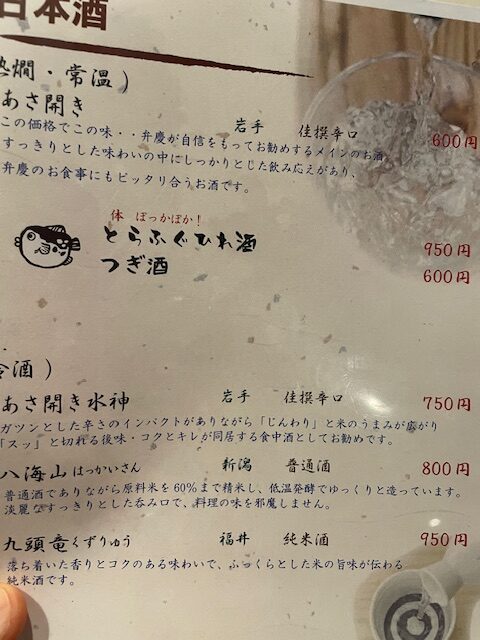 日本酒
熱燗・常温)
あさ開き 岩手 佳撰辛口 600円
この価格でこの味・・弁慶が自信をもってお勧めするメインのお酒
すっきりとした味わいの中にしっかりとした飲み応えがあり、
弁慶のお食事にもピッタリ合うお酒です。
体 ぽっかぽか!
とらふぐひれ酒 950円
つぎ酒 600円
冷酒)
あさ開き水神 岩手 佳撰辛口 750円
ガツンとした辛さのインパクトがありながら「じんわり」と米のうまみが広がり
「スッ」と切れる後味・コクとキレが同居する食中酒としてお勧めです。
八海山はっかいさん 新潟 普通酒 800円
普通酒でありながら原料米を60%まで精米し、低温発酵でゆっくりと造っています。
淡麗なすっきりとした呑み口で、料理の味を邪魔しません。
九頭竜くずりゅう 福井 純米酒 950円
落ち着いた香りとコクのある味わいで、ふっくらとした米の旨味が伝わる
純米酒です。